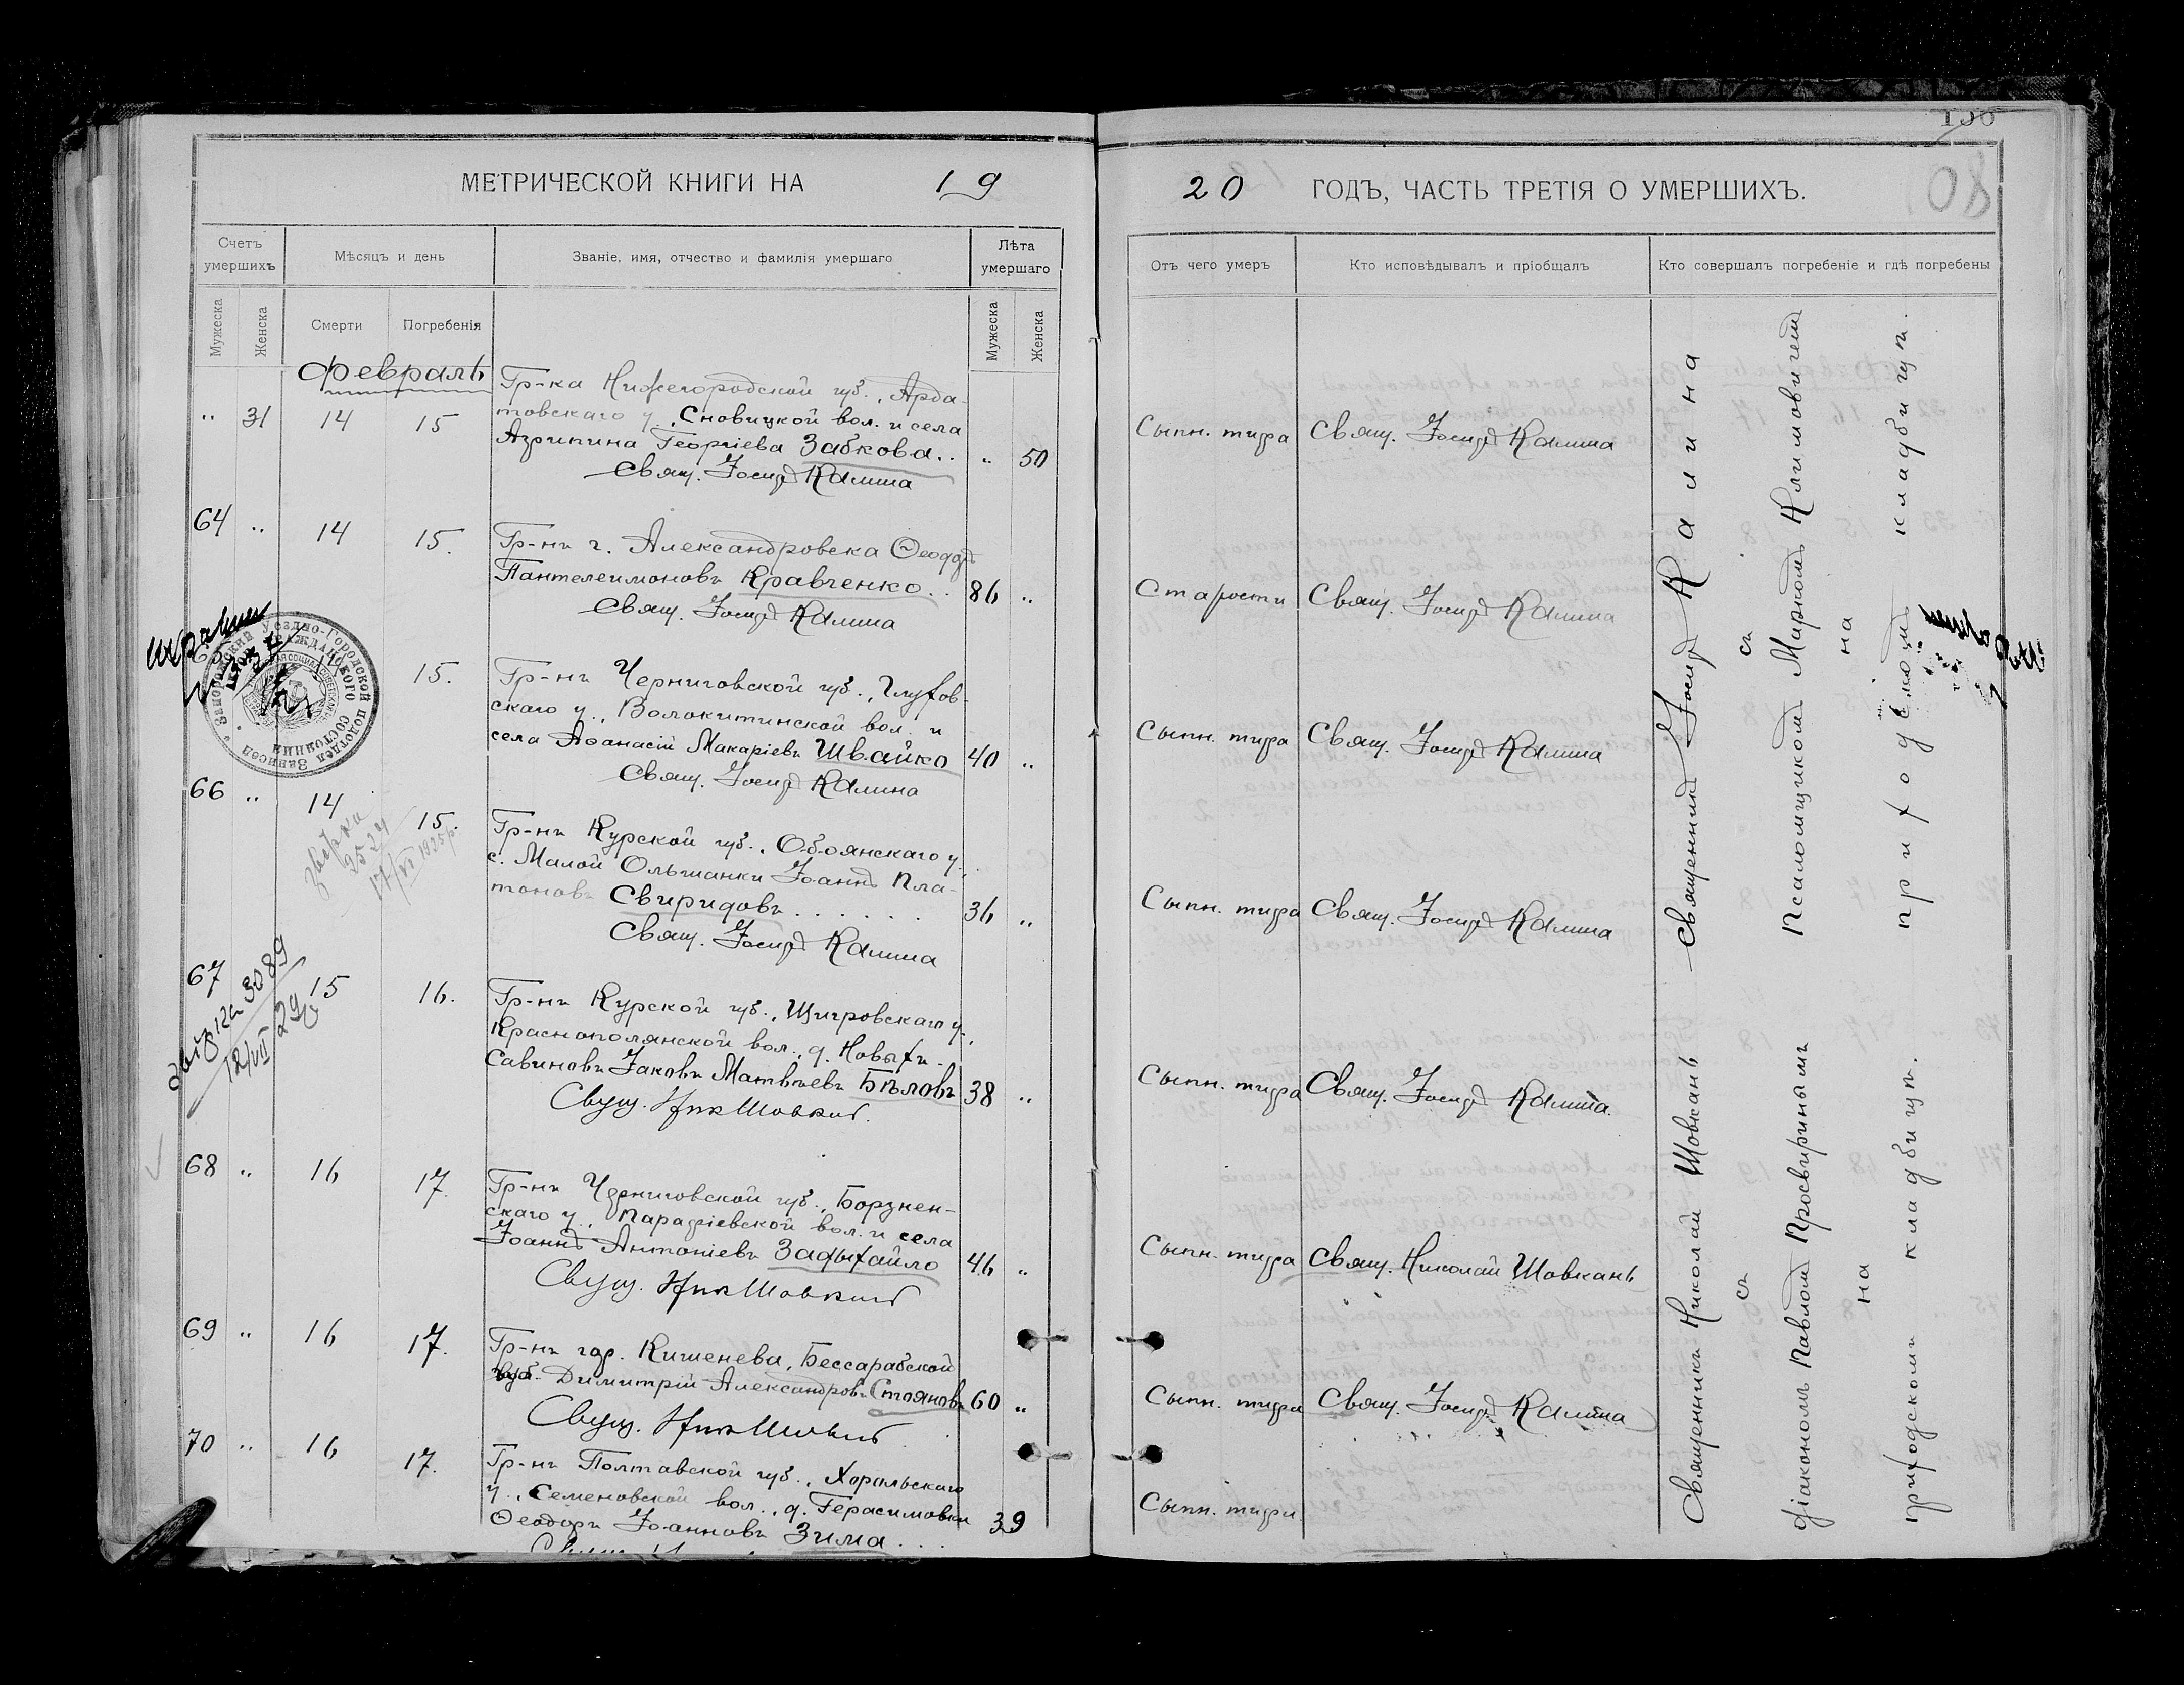 МЕТРИЧЕСКОЙ КНИГИ НА 19
Счетъ умершихъ
Мѣсяцъ и день
Званіе, имя, отчество и фамилія умершаго
Лѣта умершаго
Мужеска
Женска
Смерти
Погребенія
Мужеска
Женска
Февраль
„ 31 14 15
Гр-ка Нижегородской губ., Арда-
товскаго у., Сновицкой вол. и села
Агрипина Георгіева Забкова.. „ 50
Свящ. Іосифъ Калина
64 „ 14 15.
Гр-нъ г. Александровска Ѳеодоръ
Пантелеимоновъ Кравченко.. 86 „
Свящ. Іосифъ Калина
15.
Гр-нъ Черниговской губ., Глухов-
скаго у., Волокитинской вол. и
села Аѳанасій Макаріевъ Швайко 40 „
Свящ. Іосифъ Калина
66 „ 14 15.
Гр-нъ Курской губ., Обоянскаго у.,
с. Малой Ольшанки Іоаннъ Пла-
тоновъ Свиридовъ...... 36 „
Свящ. Іосифъ Калина
2524
17/VI 1925 р.
67 15 16.
3089
12/VII 29
Гр-нъ Курской губ., Щигровскаго у.,
Краснополянской вол., д. Новыхъ-
Савиновъ Іаковъ Матвѣевъ Бѣловъ 38 „
Свящ. Ник Шовкан
68 „ 16 17.
Гр-нъ Черниговской губ., Борзнен-
скаго у., Парафіевской вол. и села
Іоаннъ Антоніевъ Задыхайло 46 „
Свящ. Ник Шовкан
69 „ 16 17.
Гр-нъ гор. Кишенева, Бессарабской
губ. Димитрій Александровъ Стояновъ 60 „
Свящ. Ник Шовкан
70 „ 16 17.
Гр-нъ Полтавской губ., Хорольскаго
у., Семеновской вол., д. Герасимовки
Ѳеодоръ Іоанновъ Зима... 39
20 ГОДЪ, ЧАСТЬ ТРЕТІЯ О УМЕРШИХЪ.
80
Отъ чего умеръ
Кто исповѣдывалъ и пріобщалъ
Кто совершалъ погребеніе и гдѣ погребены
Сыпн. тифа Свящ. Іосифъ Калина
Старости Свящ. Іосифъ Калина
Сыпн. тифа Свящ. Іосифъ Калина
Сыпн. тифа Свящ. Іосифъ Калина
Сыпн. тифа Свящ. Іосифъ Калина.
Сыпн. тифа Свящ. Николай Шовкань
Сыпн. тифа Свящ. Іосифъ Калина
Сыпн. тифа
Священникъ Іосифъ Калина
съ
Псаломщикомъ Маркомъ Климовичемъ
на
приходскомъ кладбищѣ.
Священникъ Николай Шовкань
съ
діакономъ Павломъ Просвирнымъ
на
приходскомъ кладбищѣ.